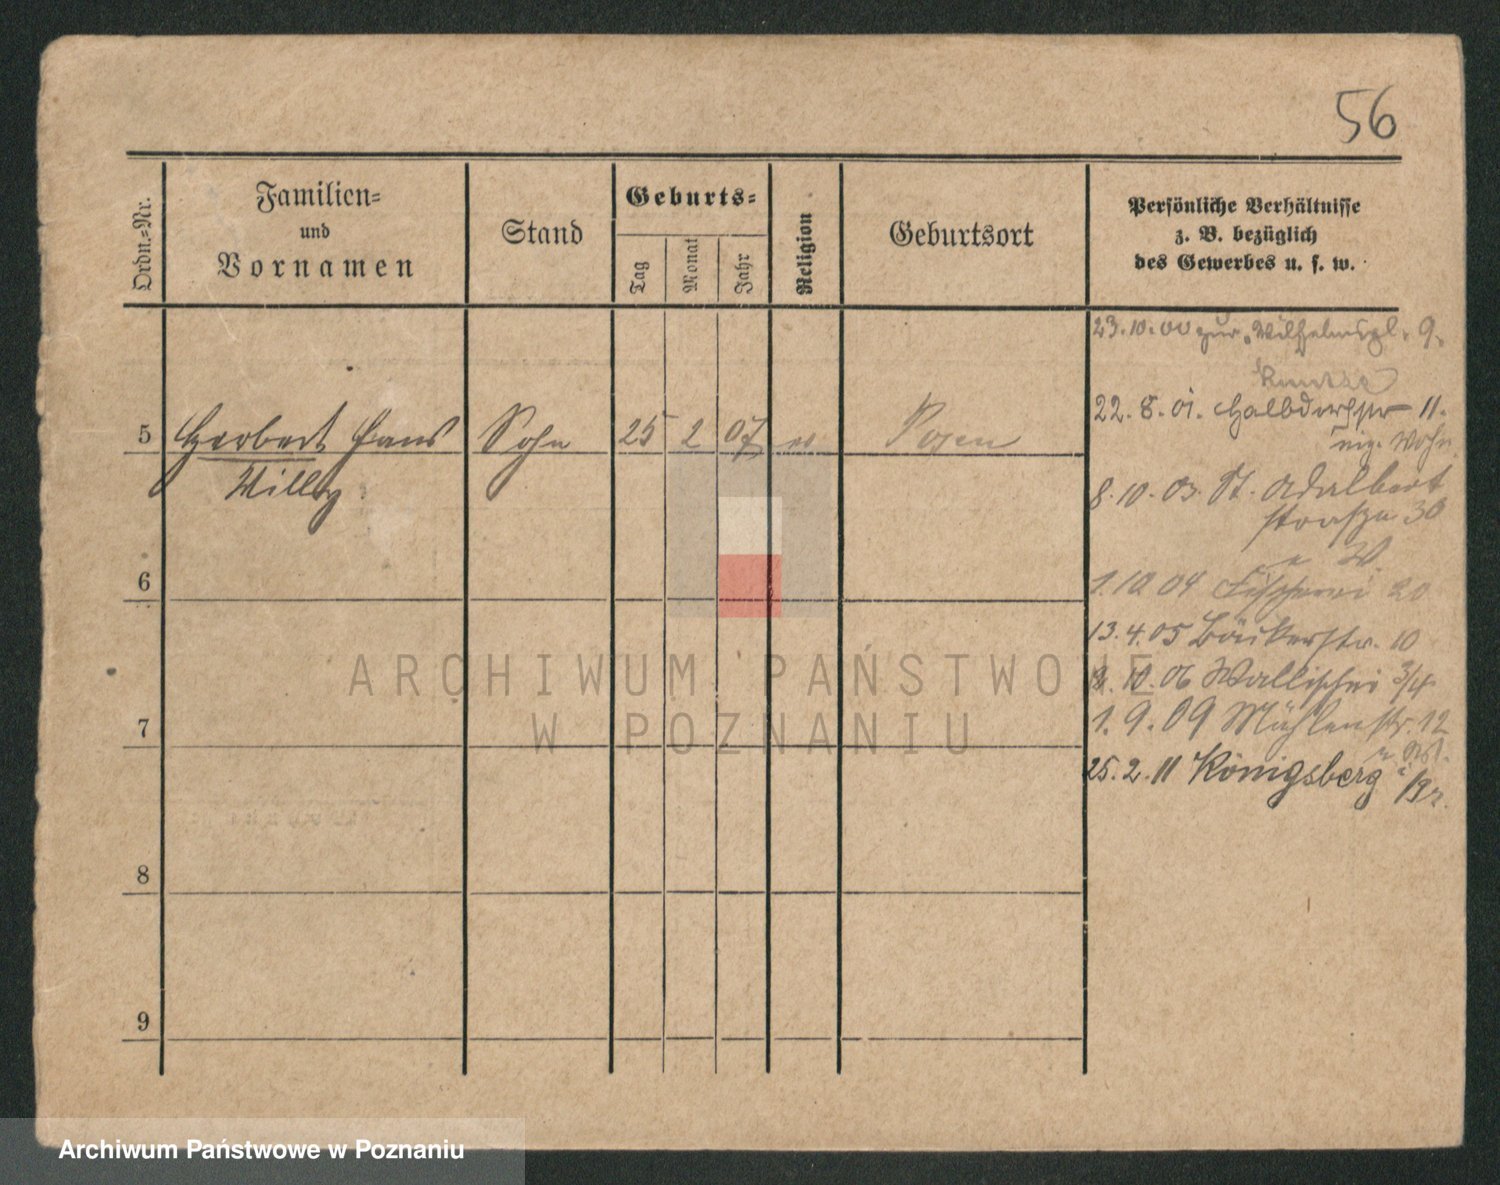 56
Ordn.-Nr.
Familien-
und
Vornamen
Stand
Geburts-
Tag
Monat
Jahr
Religion
Geburtsort
Persönliche Verhältnisse
z. B. bezüglich
des Gewerbes u. s. w.
23.10.00 zur. Wilhelmspl. 9.
22.8.01. Halbdorfstr 11.
eig. Wohn.
5 Herbert Hans Sohn 25 2 07 Posen
Willy
8.10.03. St. Adalbert
strasse 30
u W.
6
1.10 04 Fischerei 20
13.4.05 Bäckerstr. 10
10.06 Wallischei 3/4
7
1.9.09 Mühlenstr. 12
25.2.11 Königsberg i/Pr.
8
9
ARCHIWUM PAŃSTWOWE
W POZNANIU
Archiwum Państwowe w Poznaniu